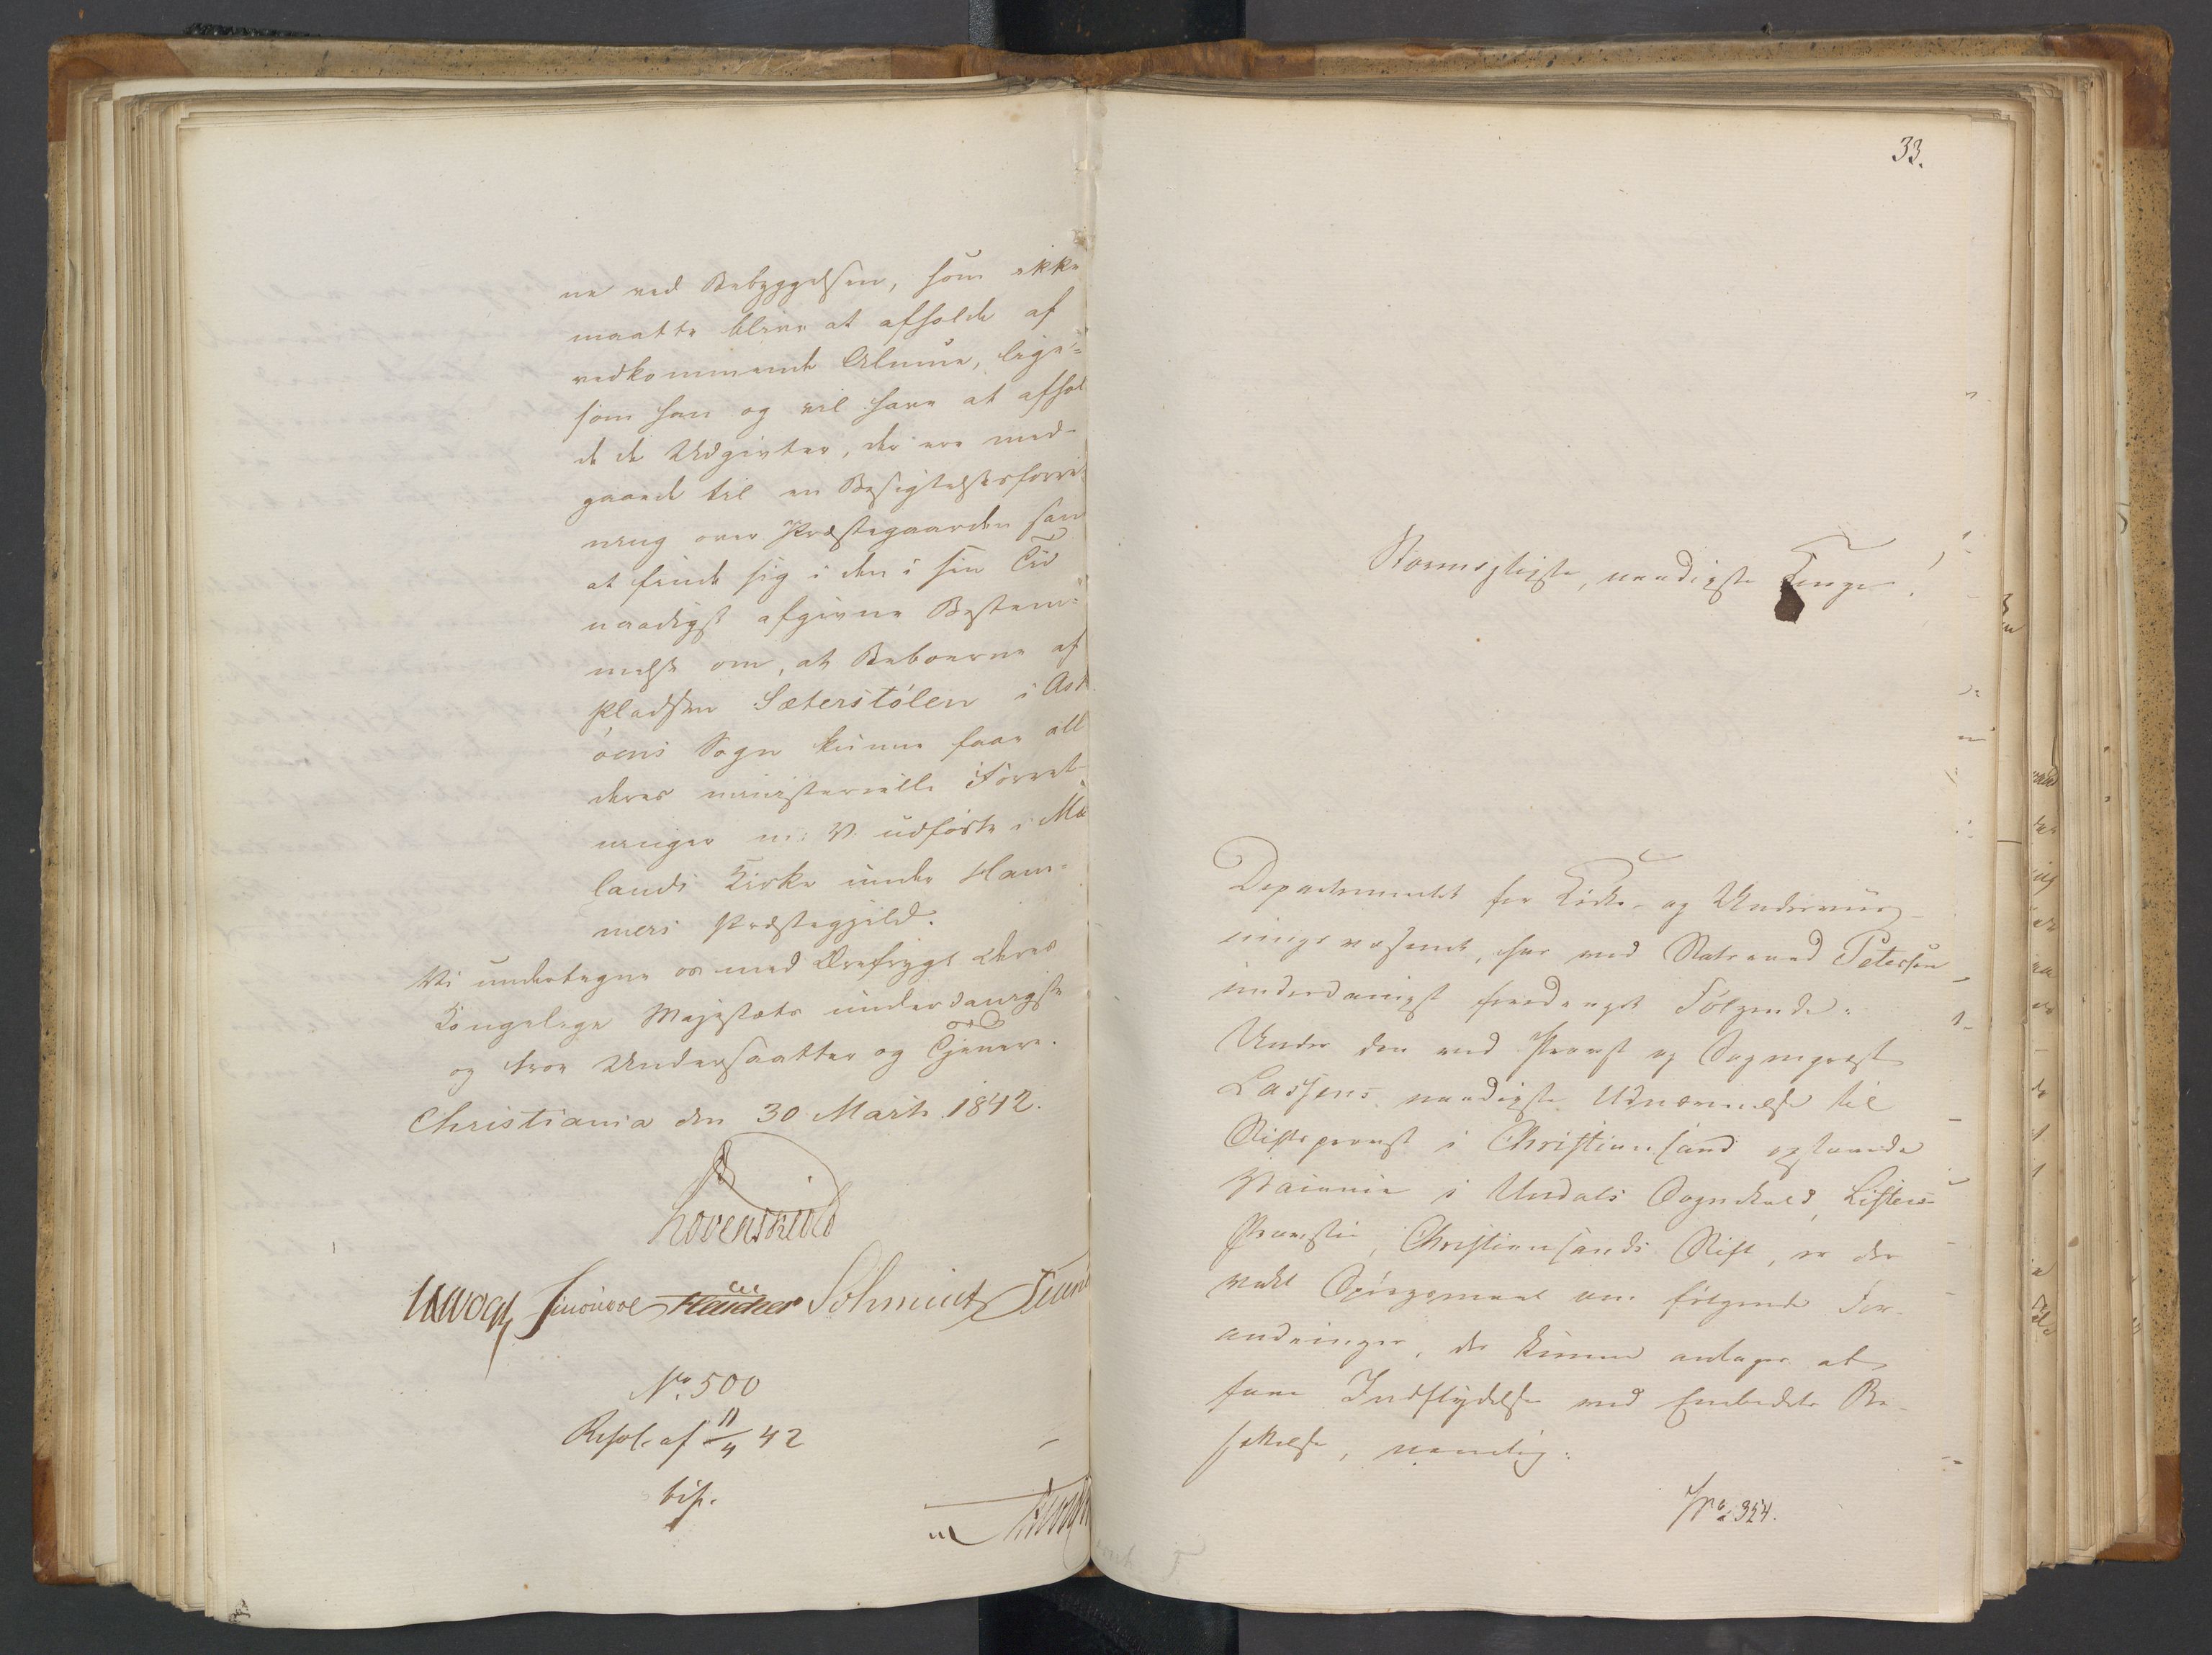 ne ved Bebyggelsen, som ikke
maatte blive at afholde af
vedkommende Almue, lige-
som han og vil have at afhol
de de Udgivter, der ere med-
gaaede til en Besigtelsesforret-
ning over Præstegaarden samt
at finde sig i den i sin Tid
naadigst afgivne Bestem-
melse om, at Beboerne af
Pladsen Sæterstölen i Ask
öens Sogn kunne faae alle
deres ministerielle Forret-
ninger m: V. udförte i Mæ
lands Kirke under Ham-
mers Præstegjeld.
Vi undertegne os med Ærefrygt Deres
Kongelige Majestæts underdanigste
og troe Undersaatter og Tjenere.
Christiania den 30 Marts 1842.
Løvenskiold
Vogt Schmidt
No. 500
Resol. af 11/4 42
bif.
33.
Stormægtigste, naadigste Konge!
Departementet for Kirke- og Underviis-
ningsvæsenet, har ved Statsraad Petersen
underdanigst foredraget Fölgende:
Under den ved Provst og Sognepræst
Lassens naadigste Udnævnelse til
Stiftsprovst i Christiansand opstaaede
Vacance i Undals Sognekald, Listers
Provstie, Christiansands Stift, er der
vakt Spörgsmaal om fölgende For-
andringer, der kunne antages at
have Indflydelse ved Embedets Be-
sættelse, nemlig:
No. 354.